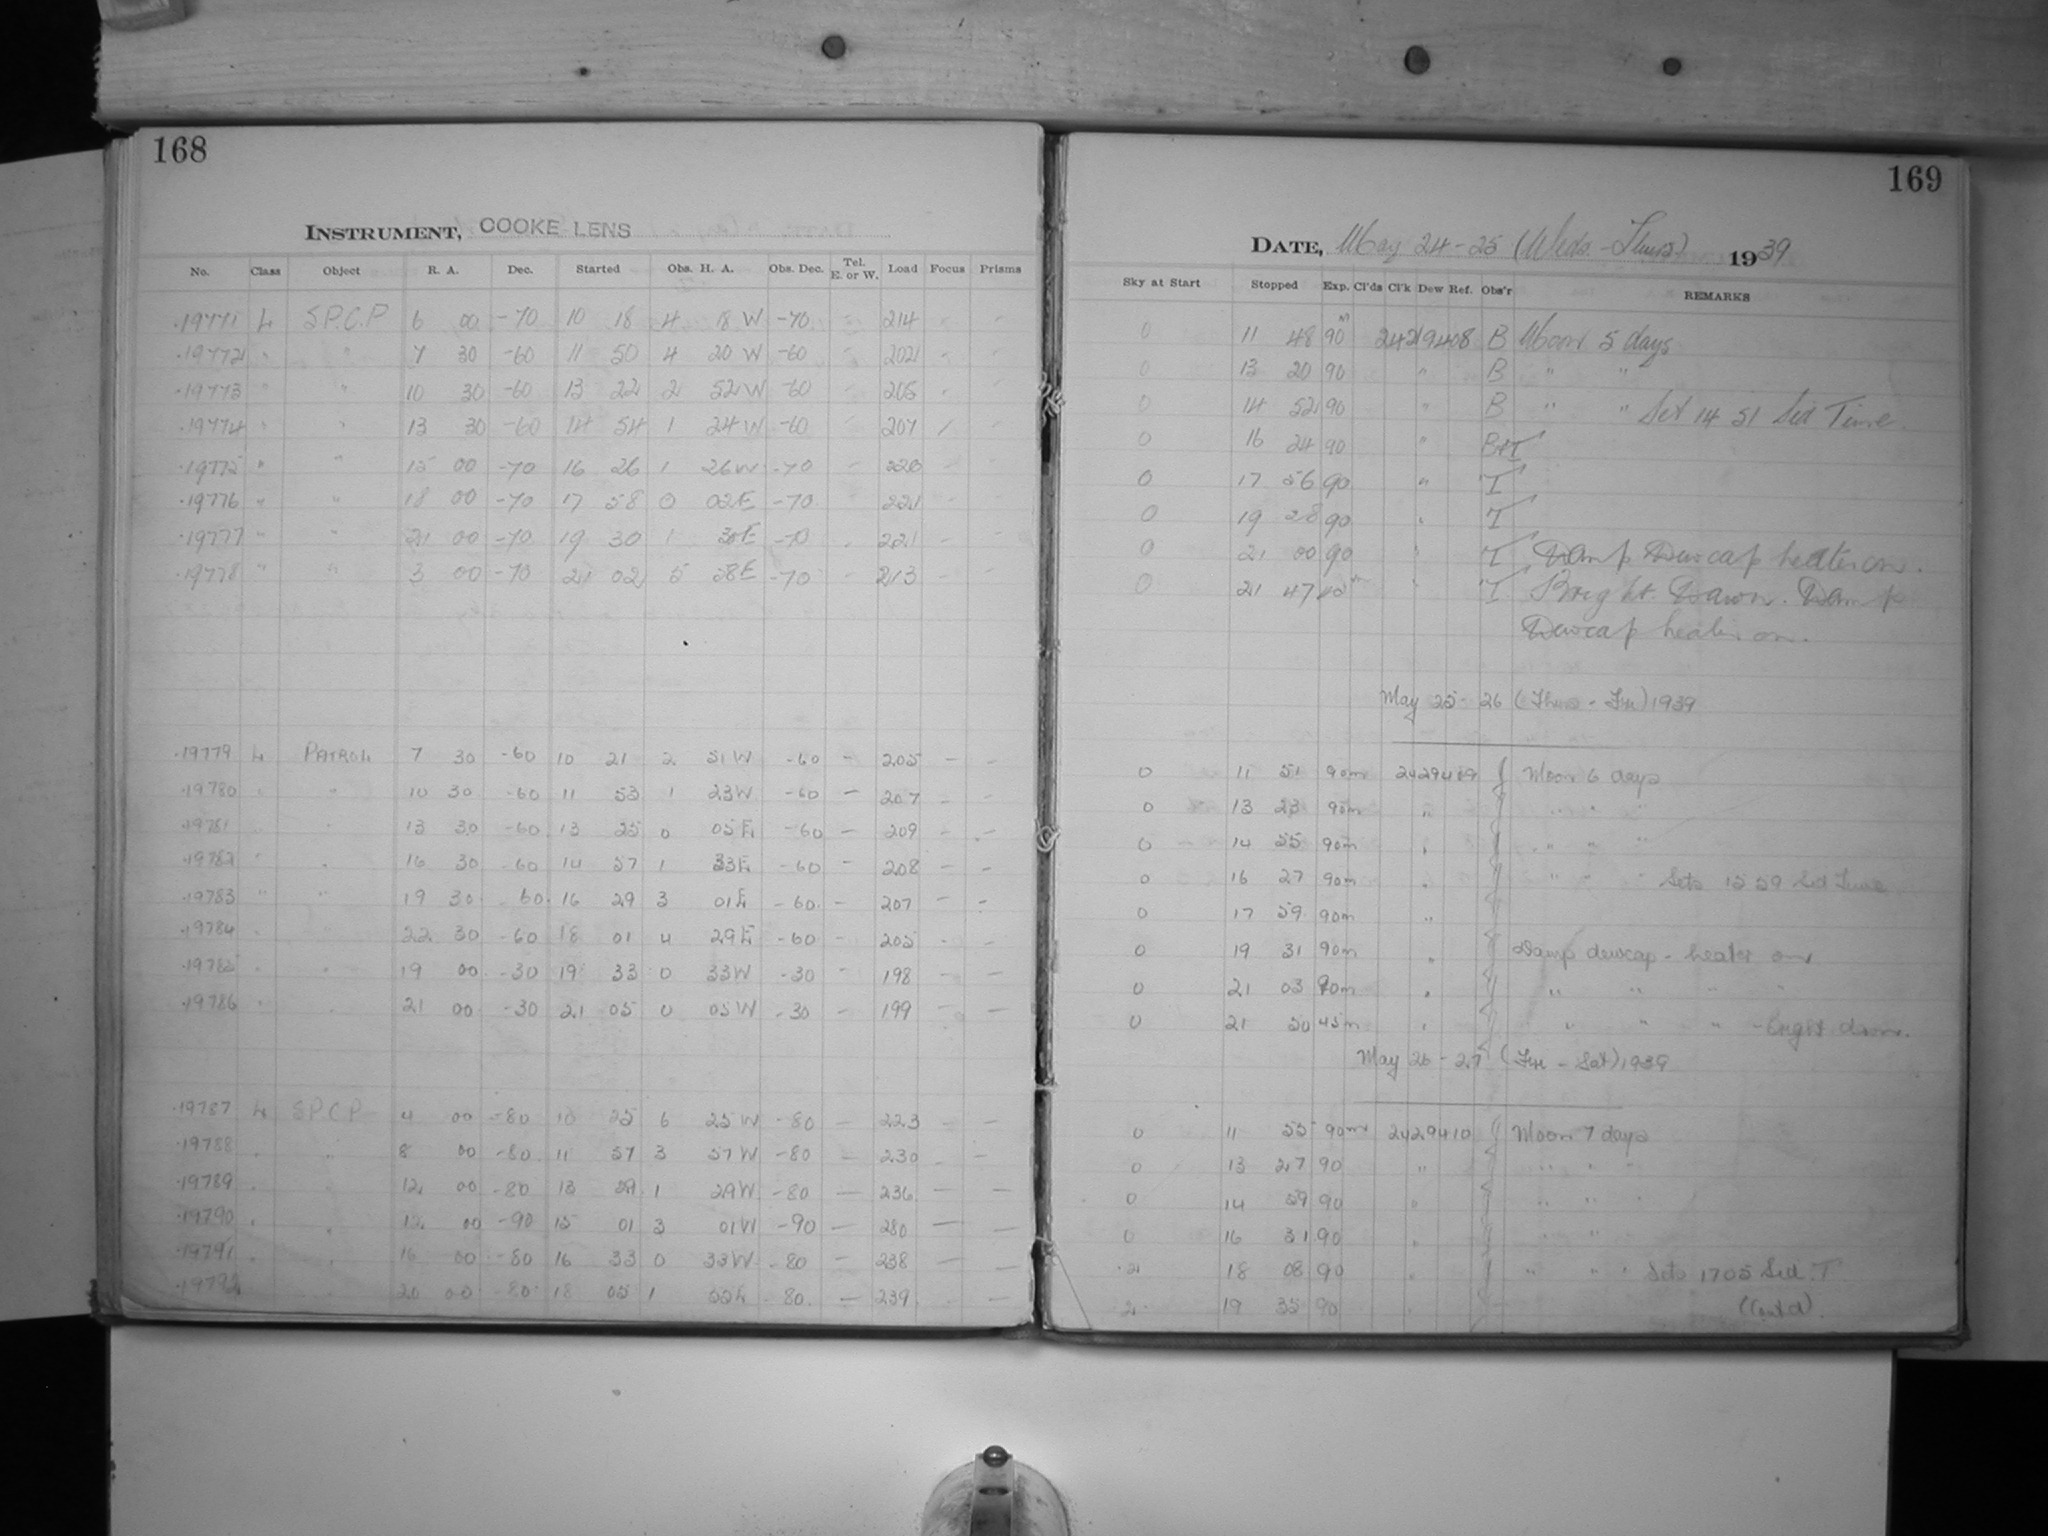 168
INSTRUMENT, COOKE LENS
No. Class Object R. A. Dec. Started Obs. H. A. Obs. Dec. Tel. E. or W. Load Focus Prisms
19771 L S.P.C.P 6 00 -70 10 18 4 18 W -70 214
19772 " " 7 30 -60 11 50 4 20 W -60 202
19773 " " 10 30 -60 13 22 2 52 W -60 205
19774 " " 13 30 -60 14 54 1 24 W -60 207
19775 " " 15 00 -70 16 26 1 26 W -70 220
19776 " " 18 00 -70 17 58 0 02 E -70 221
19777 " " 21 00 -70 19 30 1 30 E -70 221
19778 " " 3 00 -70 21 02 5 58 E -70 213
19779 L PATROL 7 30 -60 10 21 2 51 W -60 - 205 - -
19780 " " 10 30 -60 11 53 1 23 W -60 - 207 - -
19781 " " 13 30 -60 13 25 0 05 E -60 - 209 - -
19782 " " 16 30 -60 14 57 1 33 E -60 - 208 - -
19783 " " 19 30 -60 16 29 3 01 E -60 - 207 - -
19784 " " 22 30 -60 18 01 4 29 E -60 - 205 - -
19785 " " 19 00 -30 19 33 0 33 W -30 - 198 - -
19786 " " 21 00 -30 21 05 0 05 W -30 - 199 - -
19787 L S.P.C.P 4 00 -80 10 25 6 25 W -80 - 223 - -
19788 " " 8 00 -80 11 57 3 57 W -80 - 230 - -
19789 " " 12 00 -80 13 29 1 29 W -80 - 236 - -
19790 " " 12 00 -90 15 01 3 01 W -90 - 280 - -
19791 " " 16 00 -80 16 33 0 33 W -80 - 238 - -
19792 " 20 00 -80 18 05 1 55 E -80 - 239 -
169
DATE, May 24-25 (Weds.-Thurs) 1939
Sky at Start Stopped Exp. Cl'ds Cl'k Dew Ref. Obs'r REMARKS
0 11 48 90m 2429408 B Moon 5 days
0 13 20 90 " B " "
0 14 52 90 " B " " Set 14 51 Sid Time
0 16 24 90 " B+T
0 17 56 90 " T
0 19 28 90 " T
0 21 00 90 " T Damp Dewcap heater on.
0 21 47 45m " T Bright Dawn. Damp
Dewcap heater on.
May 25-26 (Thurs - Fri) 1939
0 11 51 90m 2429409 Moon 6 days
0 13 23 90m " " " "
0 14 55 90m " " " "
0 16 27 90m " " " " Sets 15 59 Sid Time
0 17 59 90m "
0 19 31 90m " Damp dewcap - heater on
0 21 03 90m " " " " "
0 21 50 45m " " " " - bright dawn.
May 26-27 (Fri - Sat) 1939
0 11 55 90m 2429410 Moon 7 days
0 13 27 90 " " " "
0 14 59 90 " " " "
0 16 31 90 " " "
2 18 03 90 " " " " Sets 1705 Sid. T
2 19 35 90 " (Contd)